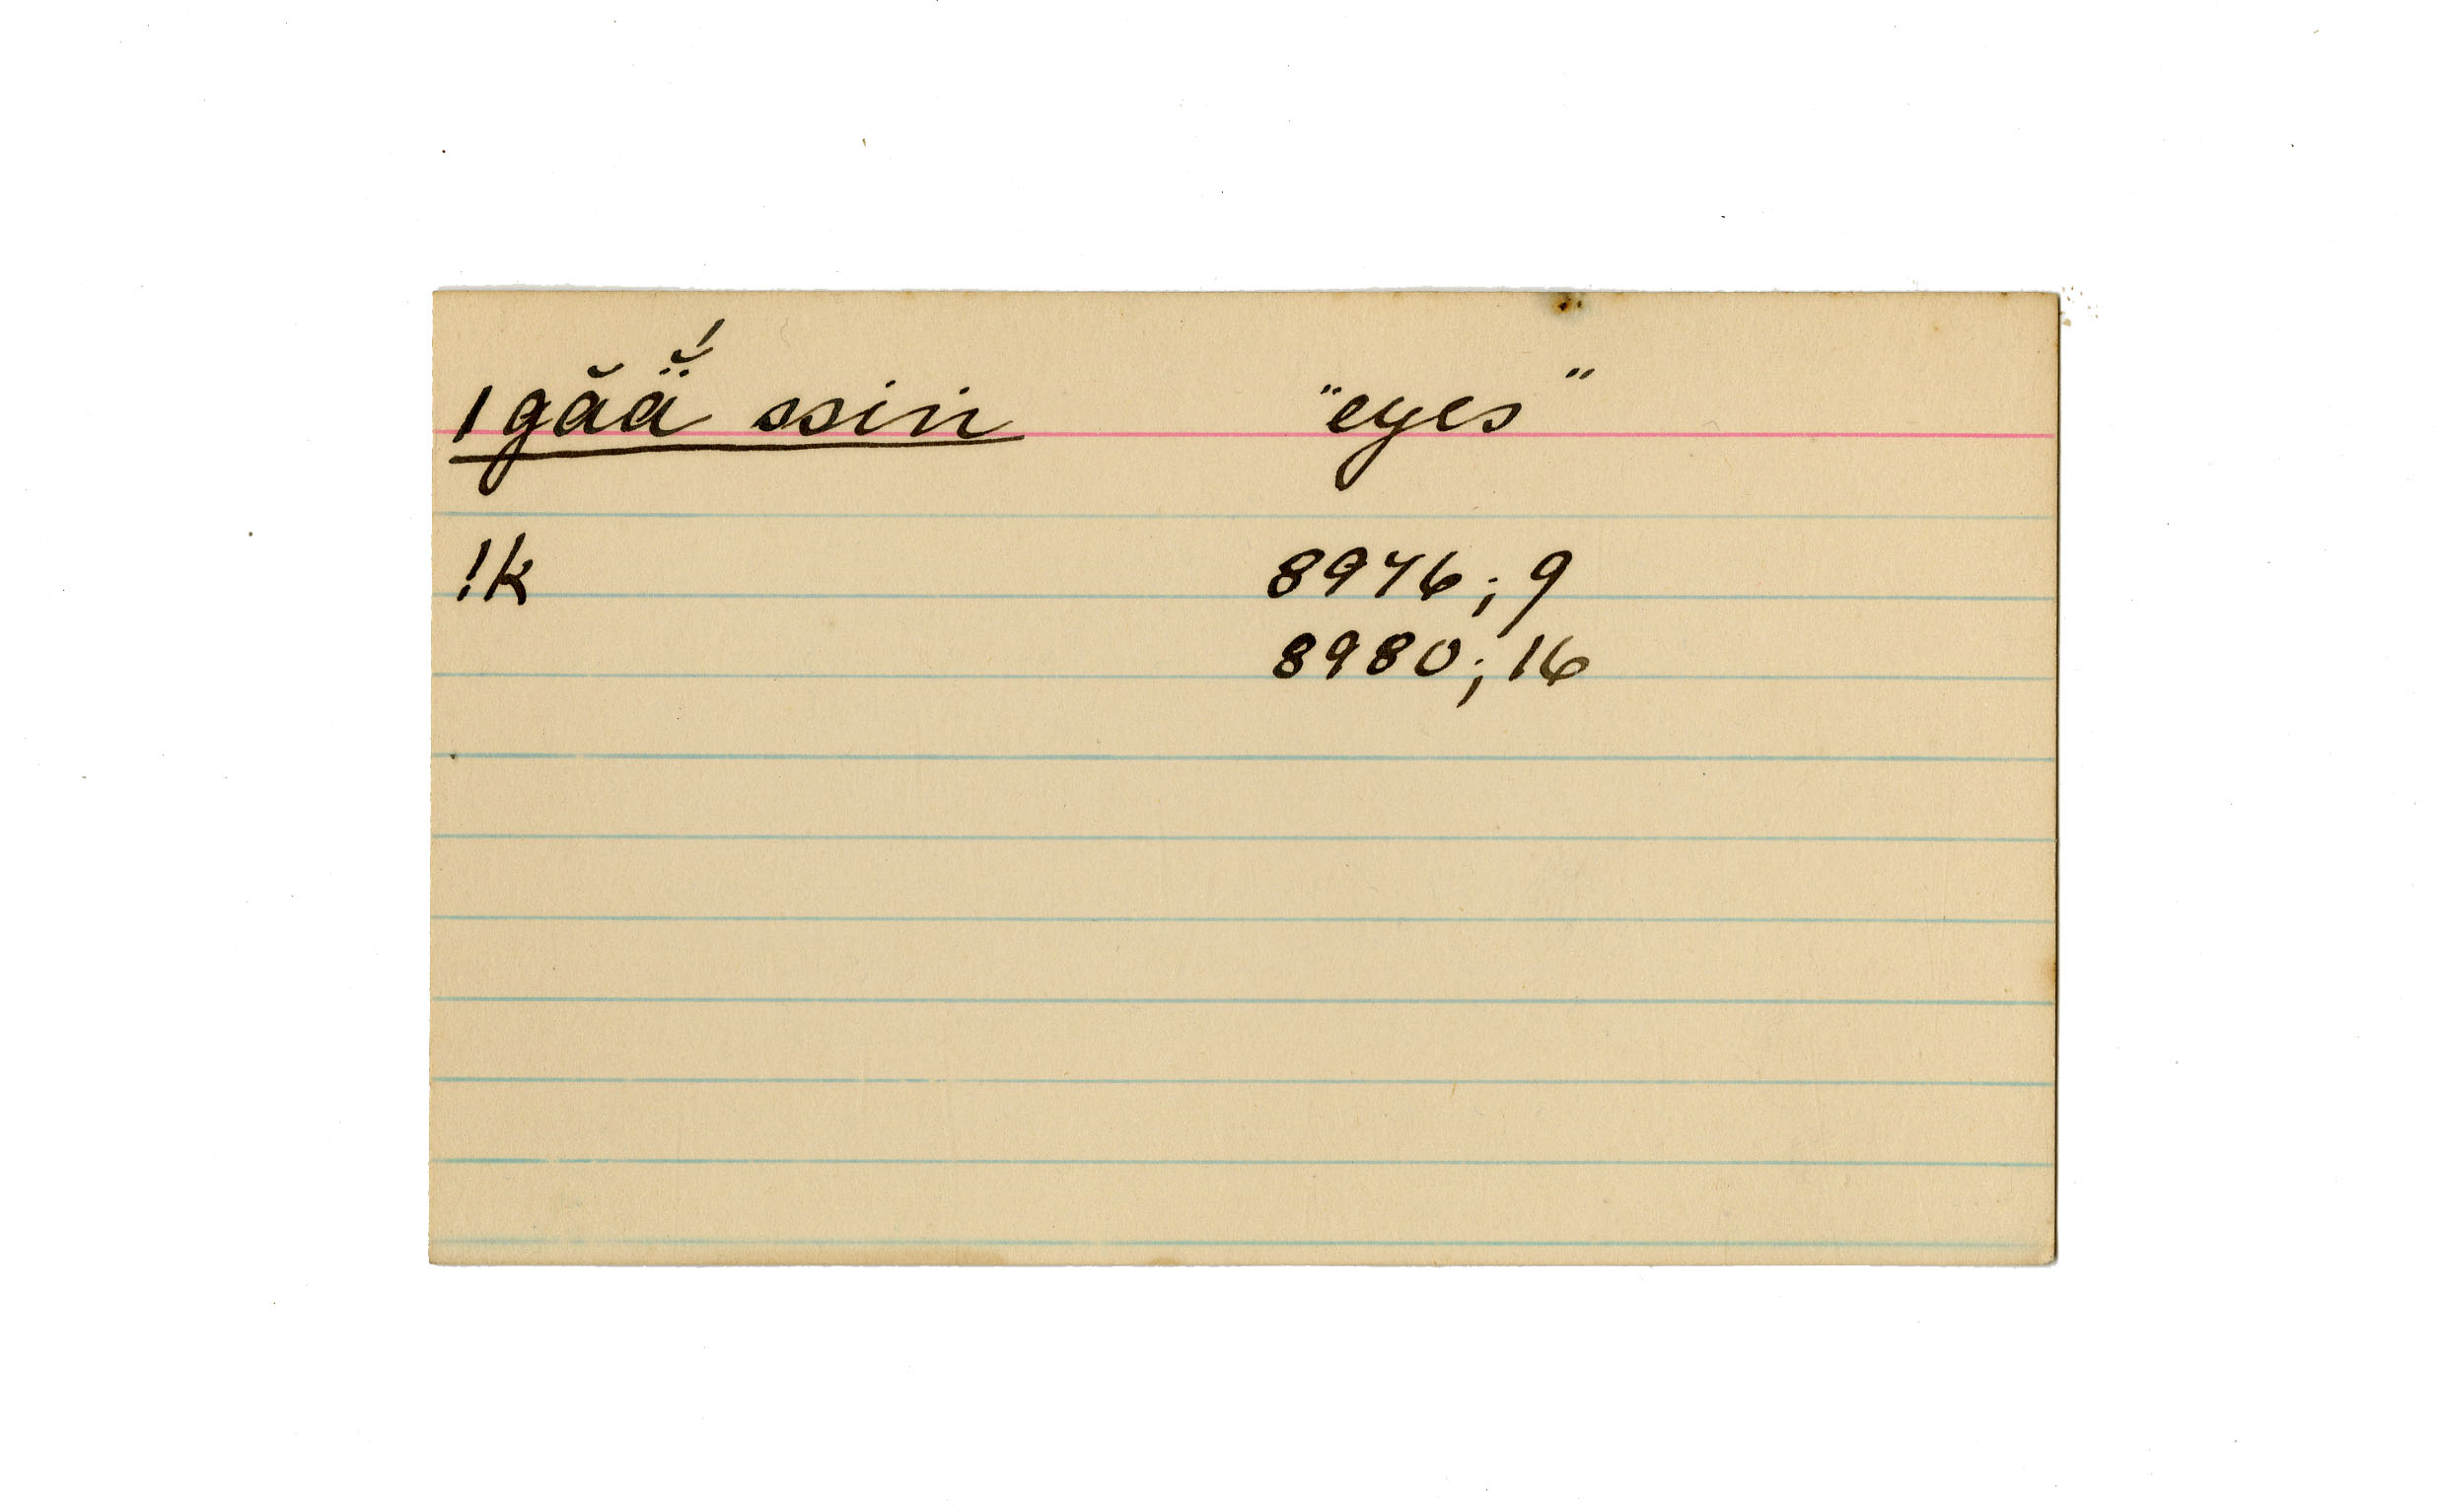 ǀgăä̆́ ssin "eyes"
!k 8976; 9
8980; 16